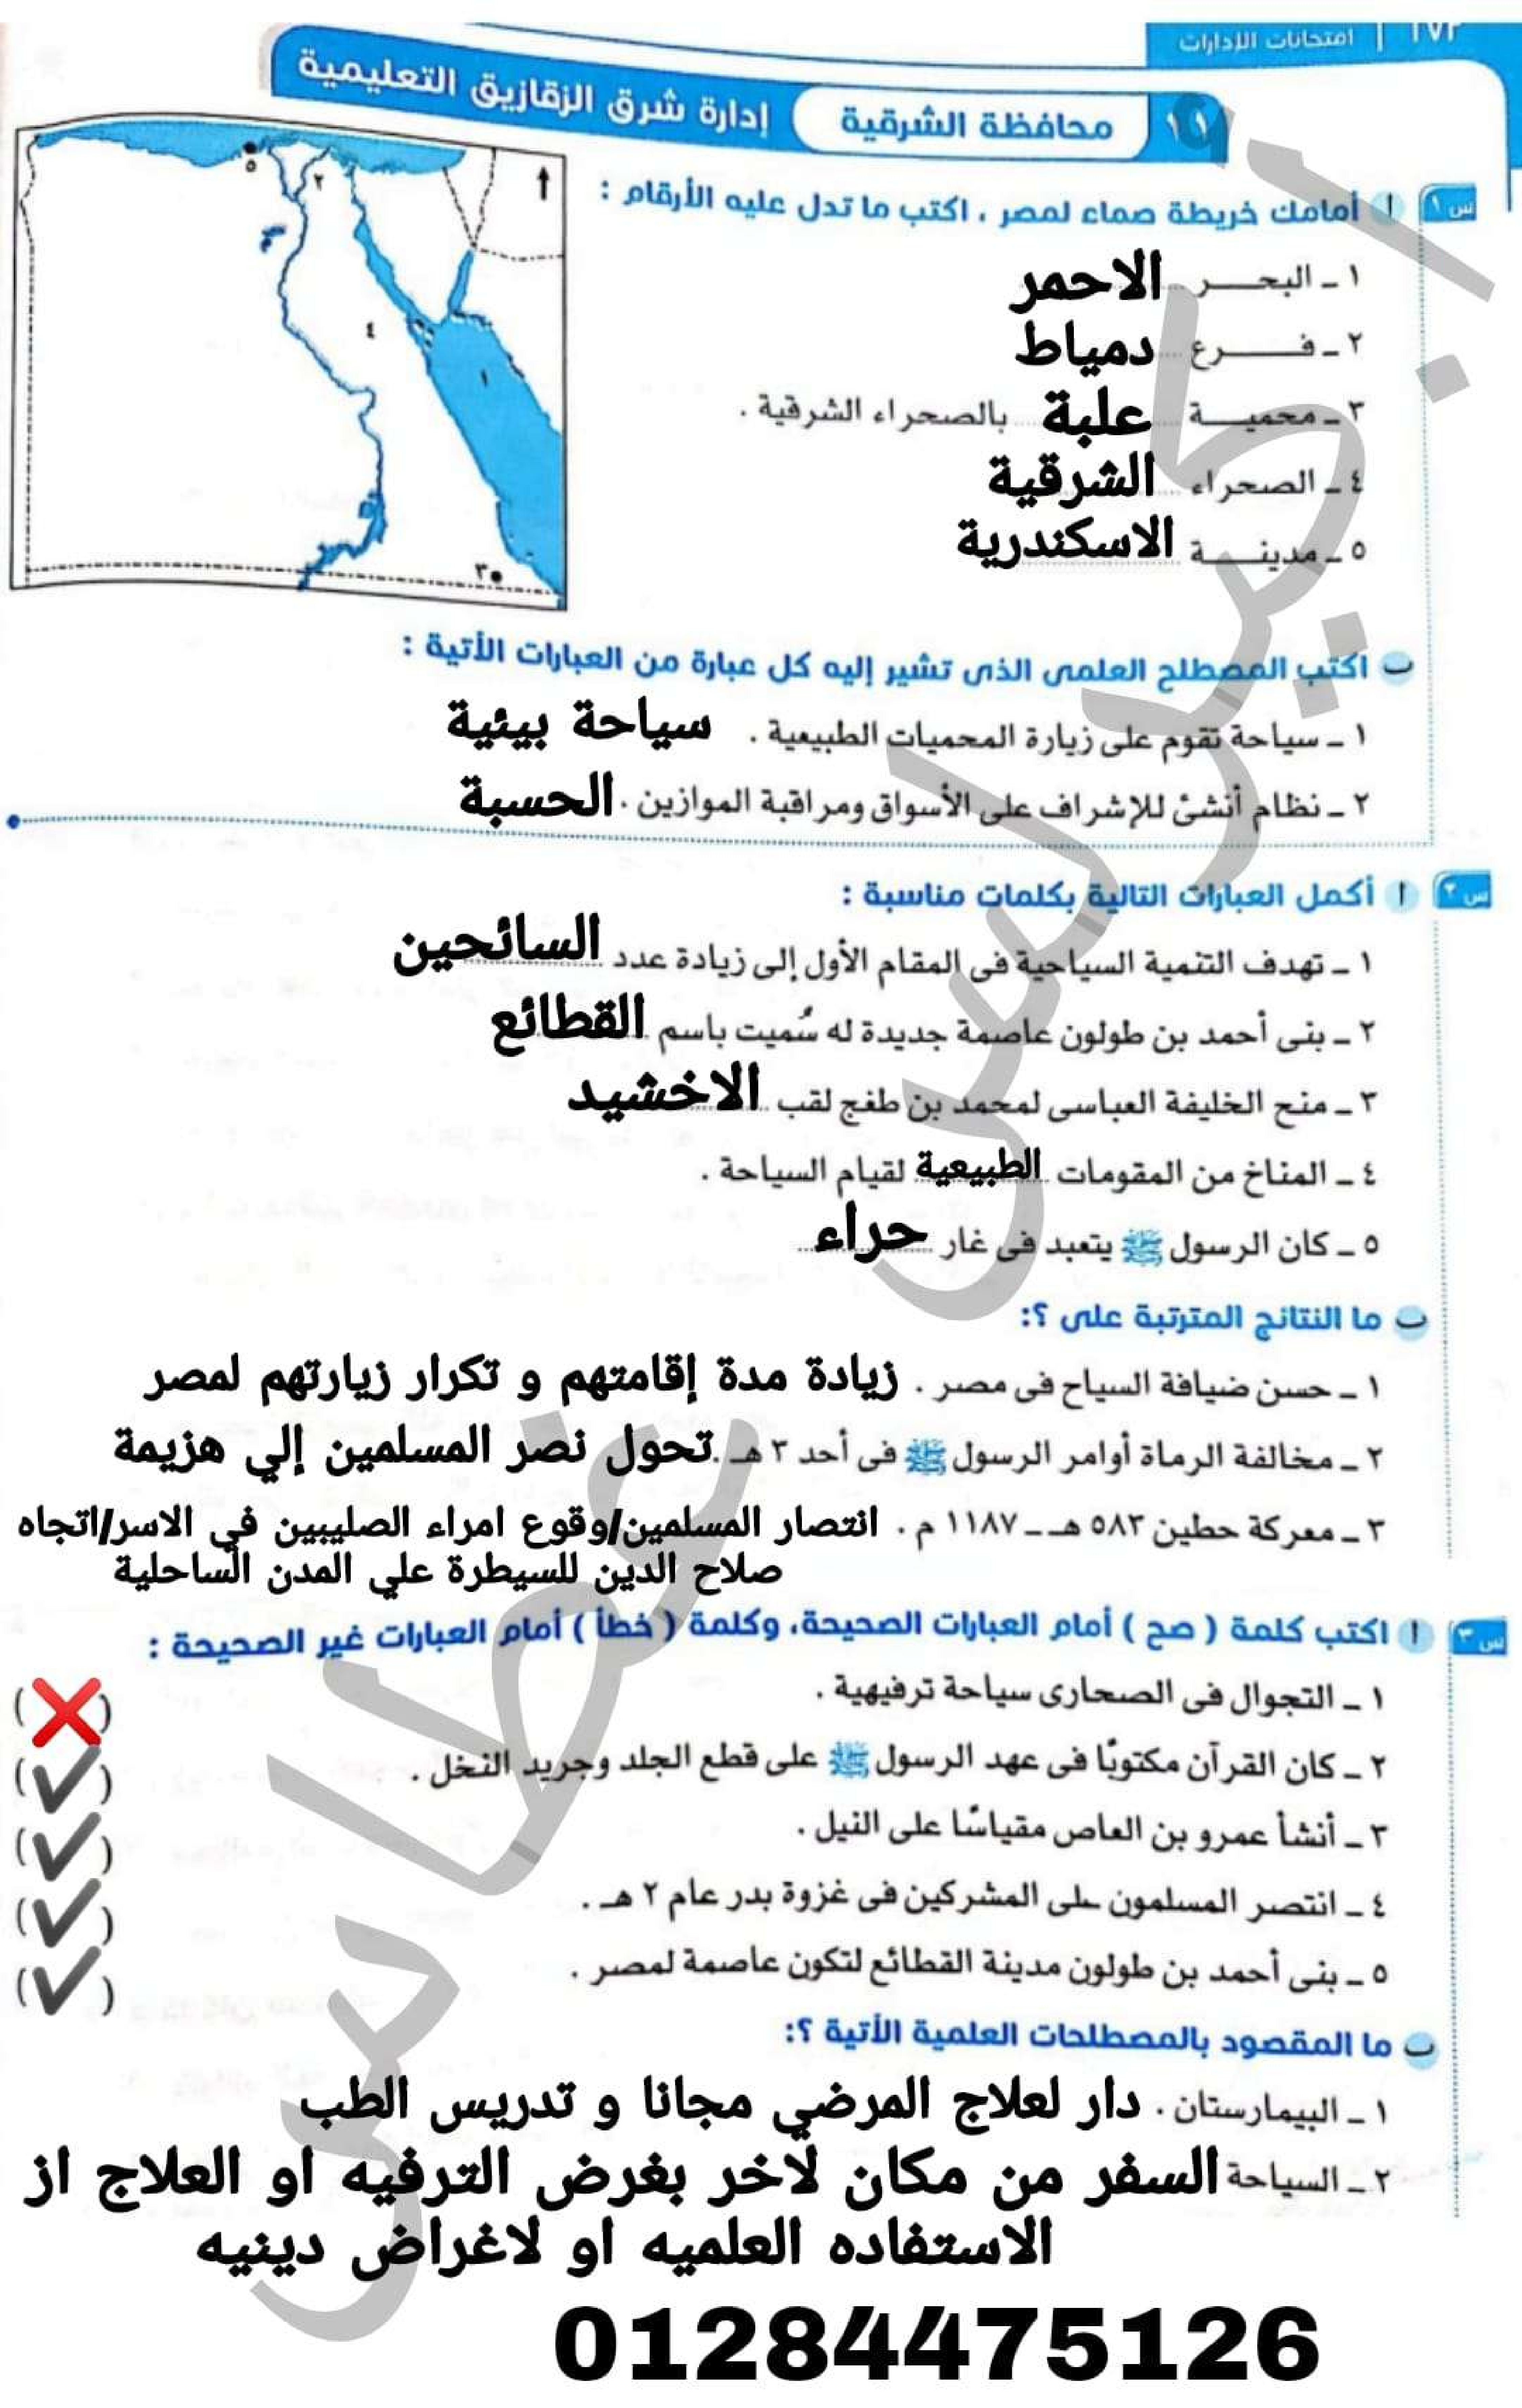 ١٧٣ | امتحانات الإدارات
١٩ محافظة الشرقية إدارة شرق الزقازيق التعليمية
س ١ ا أمامك خريطة صماء لمصر ، اكتب ما تدل عليه الأرقام :
١ ـ البحـــر الاحمر
٢ ـ فـــرع دمياط
٣ ـ محميـــة علبة بالصحراء الشرقية .
٤ ـ الصحراء الشرقية
٥ ـ مدينـــة الاسكندرية
٥
٢
٤
١
٣
ب اكتب المصطلح العلمى الذى تشير إليه كل عبارة من العبارات الأتية :
١ ـ سياحة تقوم على زيارة المحميات الطبيعية . سياحة بيئية
٢ ـ نظام أنشئ للإشراف على الأسواق ومراقبة الموازين . الحسبة
س ٢ ا أكمل العبارات التالية بكلمات مناسبة :
١ ـ تهدف التنمية السياحية فى المقام الأول إلى زيادة عدد السائحين
٢ ـ بنى أحمد بن طولون عاصمة جديدة له سُميت باسم القطائع
٣ ـ منح الخليفة العباسى لمحمد بن طغج لقب الاخشيد
٤ ـ المناخ من المقومات الطبيعية لقيام السياحة .
٥ ـ كان الرسول ﷺ يتعبد فى غار حراء
ب ما النتائج المترتبة على ؟:
١ ـ حسن ضيافة السياح فى مصر . زيادة مدة إقامتهم و تكرار زيارتهم لمصر
٢ ـ مخالفة الرماة أوامر الرسول ﷺ فى أحد ٣ هـ . تحول نصر المسلمين إلي هزيمة
٣ ـ معركة حطين ٥٨٣ هـ ـ ١١٨٧ م . انتصار المسلمين/وقوع امراء الصليبين في الاسر/اتجاه
صلاح الدين للسيطرة علي المدن الساحلية
س ٣ ا اكتب كلمة ( صح ) أمام العبارات الصحيحة، وكلمة ( خطأ ) أمام العبارات غير الصحيحة :
١ ـ التجوال فى الصحارى سياحة ترفيهية . (❌)
٢ ـ كان القرآن مكتوبًا فى عهد الرسول ﷺ على قطع الجلد وجريد النخل . (✔)
٣ ـ أنشأ عمرو بن العاص مقياسًا على النيل . (✔)
٤ ـ انتصر المسلمون على المشركين فى غزوة بدر عام ٢ هـ . (✔)
٥ ـ بنى أحمد بن طولون مدينة القطائع لتكون عاصمة لمصر . (✔)
ب ما المقصود بالمصطلحات العلمية الأتية ؟:
١ ـ البيمارستان . دار لعلاج المرضي مجانا و تدريس الطب
٢ ـ السياحة السفر من مكان لاخر بغرض الترفيه او العلاج از
الاستفاده العلميه او لاغراض دينيه
01284475126